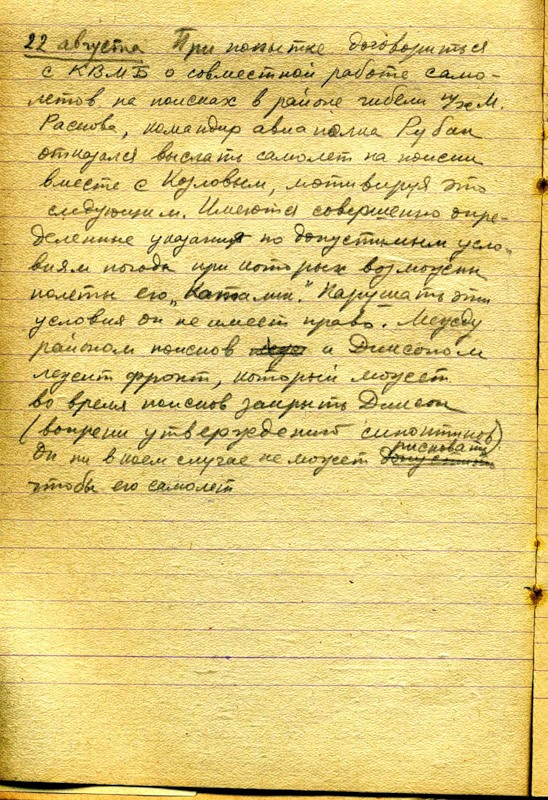 22 августа При попытке договориться
с КВМБ о совместной работе само-
летов на поисках в районе гибели п/х М.
Раскова, командир авиаполка Рубан
отказался выслать самолет на поиски
вместе с Козловым, мотивируя это
следующим. Имеются совершенно опре-
деленные указания по допустимым усло-
виям погоды при которых возможны
полеты его „Каталин". Нарушать эти
условия он не имеет право. Между
районом поисков и Диксоном
лежит фронт, который может
во время поисков закрыть Диксон
(вопреки утверждений синоптиков)
Он ни в коем случае не может рисковать
допустить
чтобы его самолет